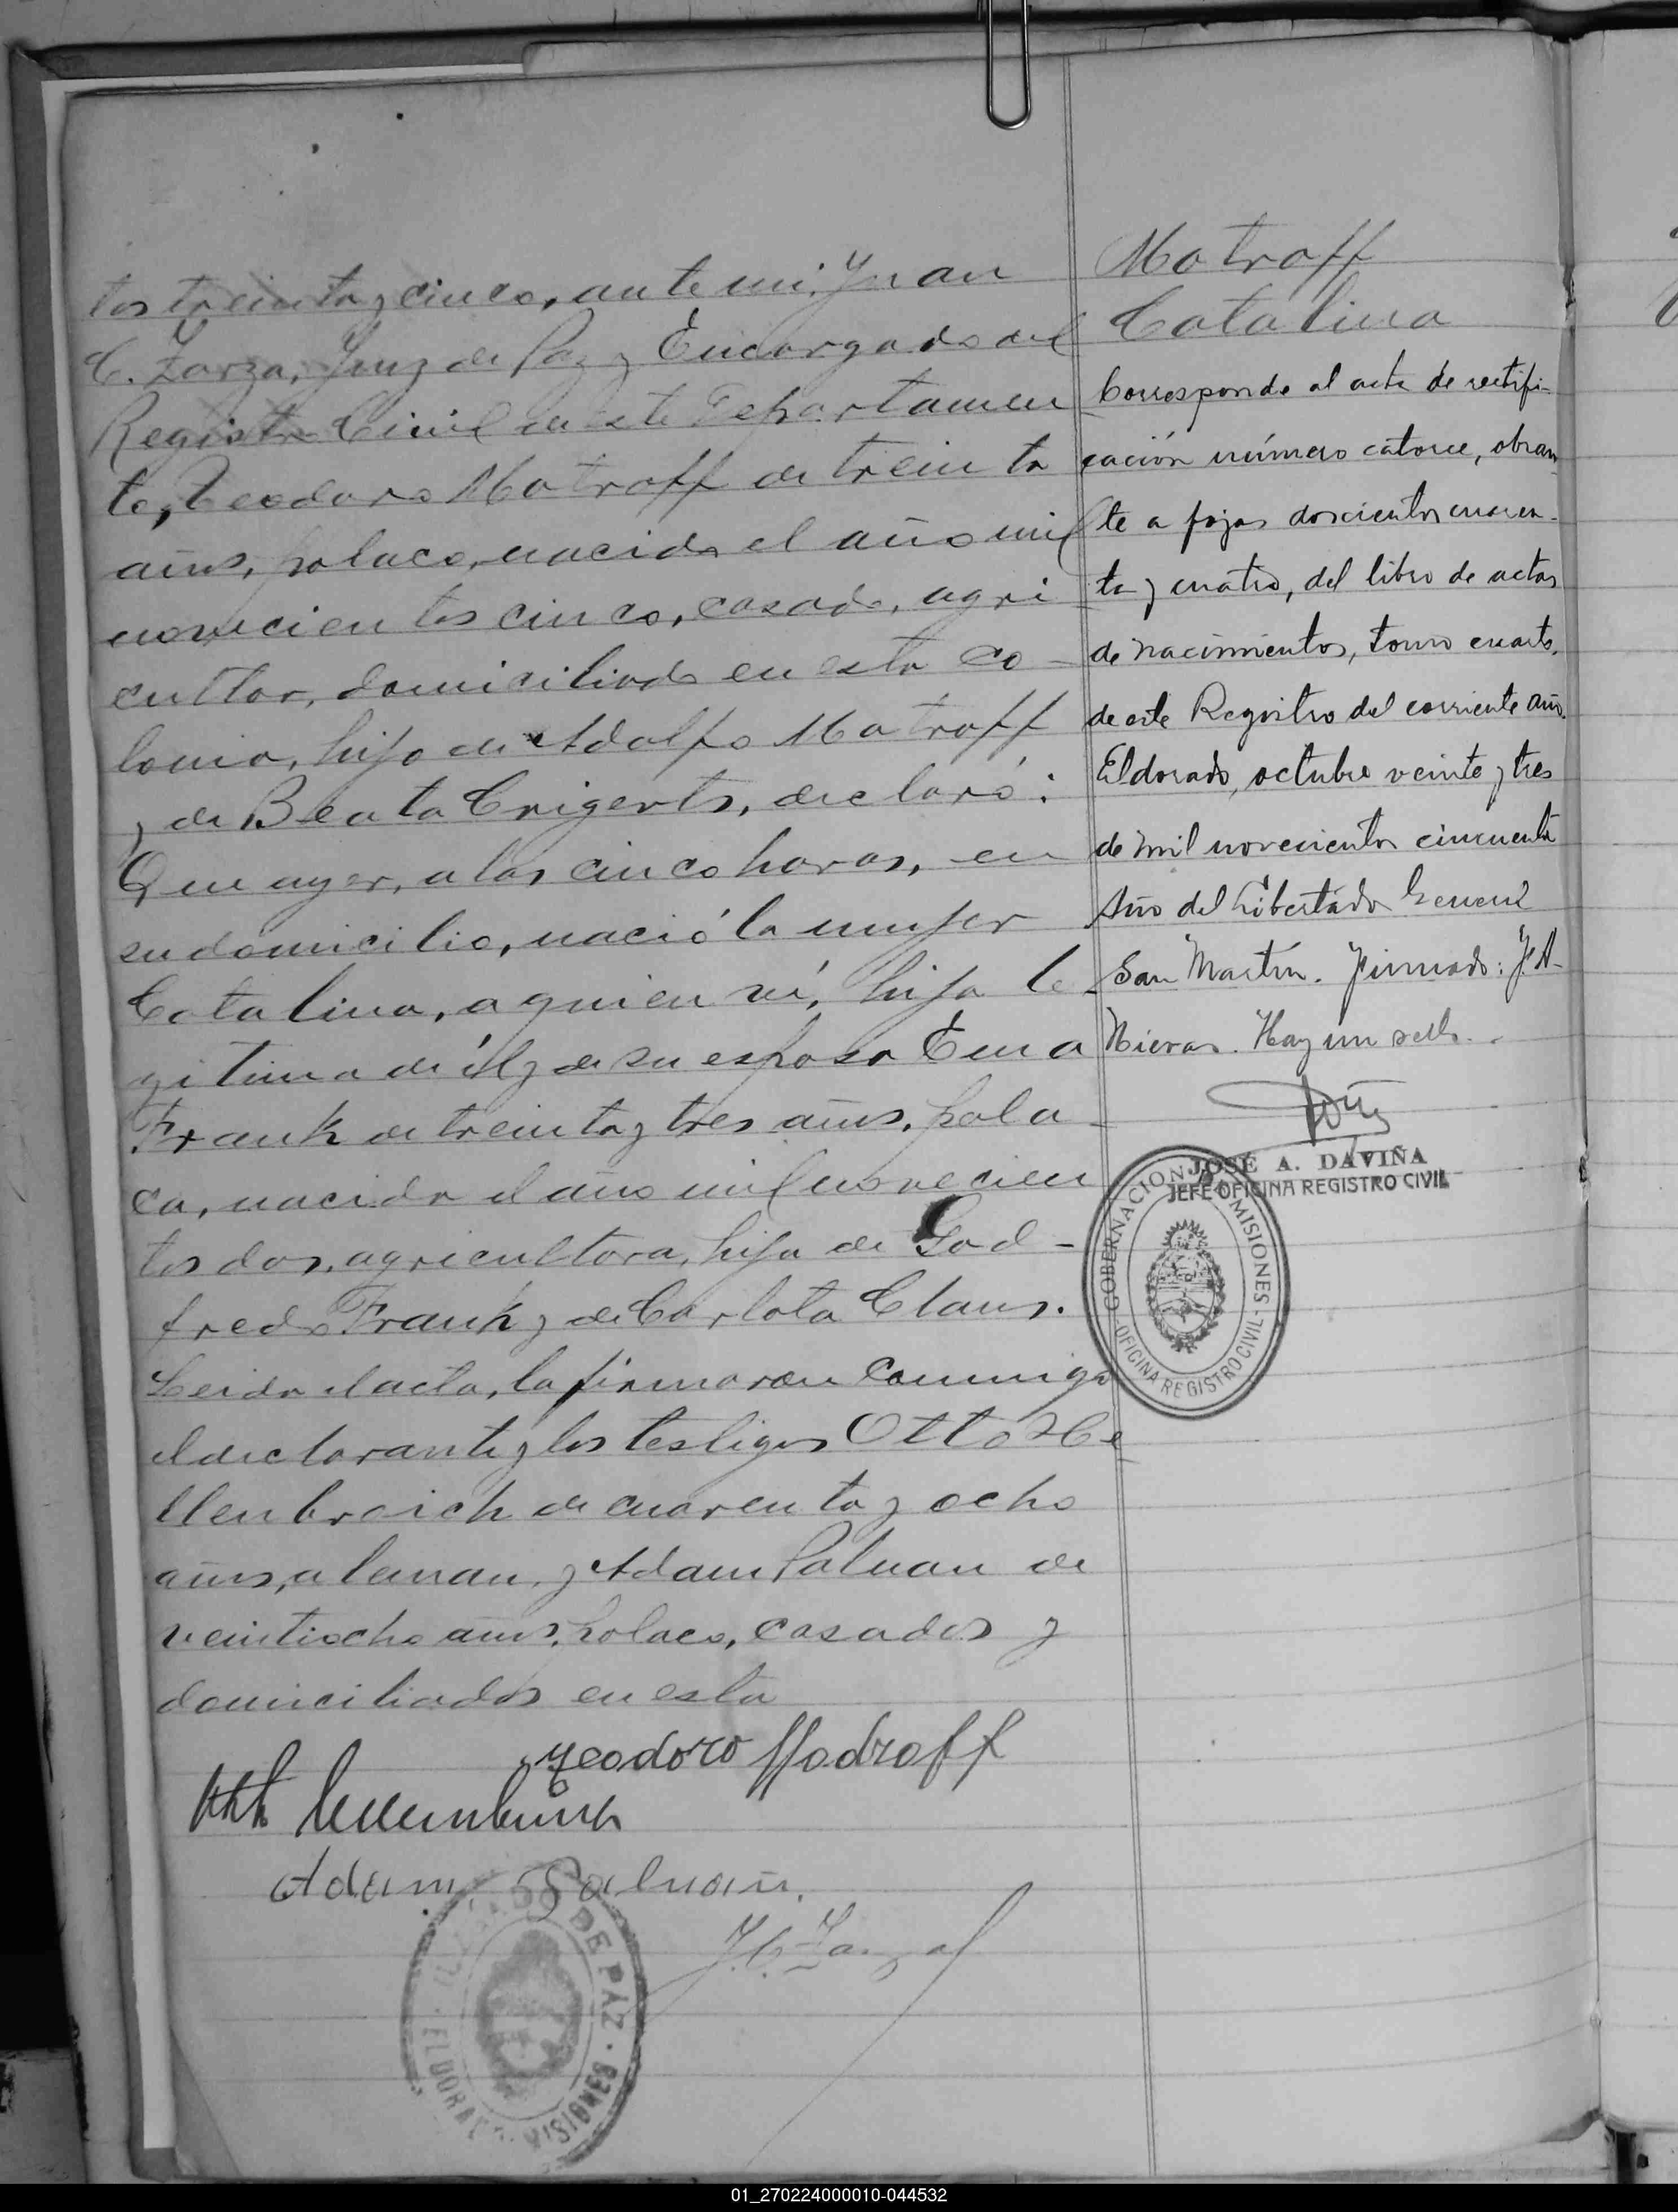 tos treinta y cinco, ante mi, Juan
C. Zarza, Juez de Paz y Encargado del
Registro Civil de este Departamen
to, Teodoro Motroff de treinta
años, polaco, nacido el año mil
novecientos cinco, casado, agri
cultor, domiciliado en esta co-
lonia, hijo de Adolfo Motroff
y de Beata Crigerts, declaró:
Que ayer, a las cinco horas, en
su domicilio, nació la mujer
Catalina, a quien ví, hija le-
gitima de él y de su esposa Ema
Frank de treinta y tres años, pola-
ca, nacida el año mil novecien
tos dos, agricultora, hija de God-
fredo Frank y de Carlota Claus.
Leida el acta, la firmaron conmigo
el declarante y los testigos Otto He
llenbroich de cuarenta y ocho
años, aleman, y Adam Paluan de
veintiocho años, polaco, casados y
domiciliados en esta
Teodoro Modroff
Adam Paluañ.
J.C. Zarza
JUZGADO DE PAZ · ELDORADO · MISIONES
Motroff
Catalina
Corresponde al acta de rectifi-
cación número catorce, obran
te a fojas doscientos cuaren-
ta y cuatro, del libro de actas
de nacimientos, tomo cuarto,
de este Registro del corriente año.
Eldorado, octubre veinte y tres
de mil novecientos cincuenta
Año del Libertador General
San Martín. Firmado: J. A-
Nieras. Hay un sello.
JOSE A. DAVIÑA
JEFE OFICINA REGISTRO CIVIL
GOBERNACION DE MISIONES - OFICINA REGISTRO CIVIL -
01_270224000010-044532